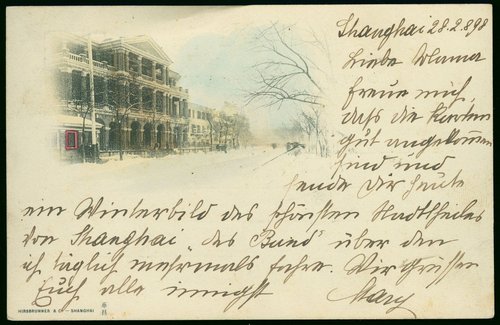 Shanghai 28.2.898
Liebe Mama
freue mich,
daß die Karten
gut angekommen
sind und
sende Dir heute
ein Winterbild des schönsten Stadttheiles
von Shanghai „des Bund" über den
ich täglich mehrmals fahre. Wir grüssen
Euch alle innigst Mary
HIRSBRUNNER & Co - SHANGHAI